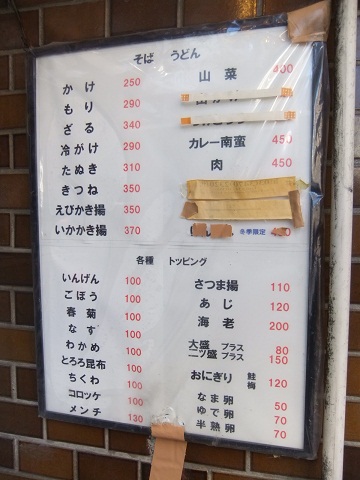 そば うどん
かけ 250
もり 290
ざる 340
冷がけ 290
たぬき 310
きつね 350
えびかき揚 350
いかかき揚 370
山菜 400
カレー南蛮 450
肉 450
冬季限定
各種 トッピング
いんげん 100
ごぼう 100
春菊 100
なす 100
わかめ 100
とろろ昆布 100
ちくわ 100
コロッケ 100
メンチ 130
さつま揚 110
あじ 120
海老 200
大盛 プラス 80
二ツ盛 プラス 150
おにぎり 鮭 梅 120
なま卵 50
ゆで卵 70
半熟卵 70